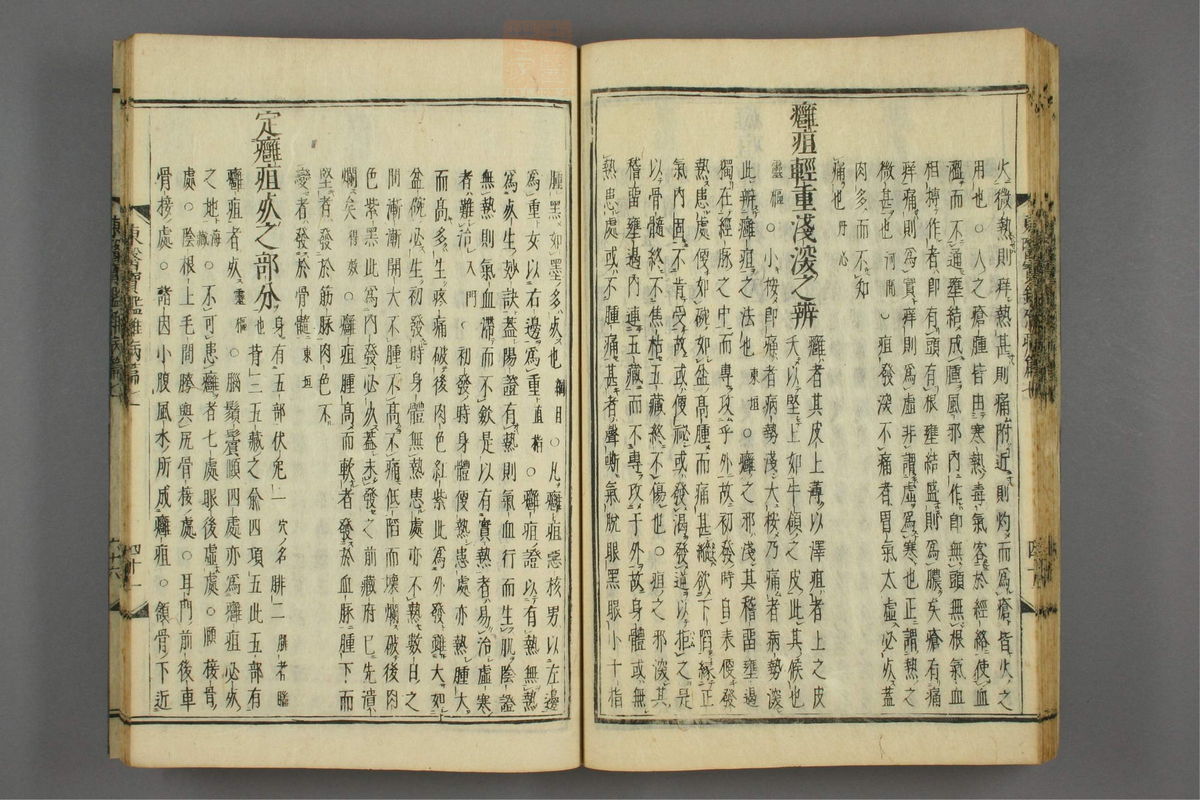 火微熱則痒熱甚則痛附近則灼而爲瘡皆火之
用也○人之瘡腫皆由寒熱毒氣客於經絡使血
澁而不通壅結成腫風邪內作即無頭無根氣血
相搏作者即有頭有根壅結盛則爲膿矣瘡有痛
痒痛則爲實痒則爲虛非謂虛爲寒也正謂熱之
微甚也河間○疽發深不痛者胃氣太虛必死蓋
肉多而不知
痛也丹心
癰疽輕重淺深之辨
癰者其皮上薄以澤疽者上之皮
夭以堅上如牛領之皮此其候也
靈樞○小按即痛者病勢淺大按乃痛者病勢深
此辨癰疽之法也東垣○癰之邪淺其稽留壅遏
獨在經脉之中而專攻乎外故初發時自表便發
熱患處便如碗如盆高腫而痛甚縱欲下陷緣正
氣內固不肯受故或便祕或發渴發逆以拒之是
以骨髓終不焦枯五藏終不傷也○疽之邪深其
稽留壅遏內連五藏而不專攻于外故身體或無
熱患處或不腫痛甚者聲嘶氣脫眼黑眼小十指
腫黑如墨多死也綱目○凡癰疽惡核男以左邊
爲重女以右邊爲重直指○癰疽證以有熱無熱
爲死生妙訣蓋陽證有熱則氣血行而生肌陰證
無熱則氣血滯而不斂是以有實熱者易治虛寒
者難治入門○初發時身體便熱患處亦熱腫大
而高多生疼痛破後肉色紅紫此爲外發雖大如
盆碗必生初發時身體無熱患處亦不熱數日之
間漸漸開大不腫不高不痛低陷而壞爛破後肉
色紫黑此爲內發必死蓋未發之前藏府已先潰
爛矣得效○癰疽腫高而軟者發於血脉腫下而
堅者發於筋脉肉色不
變者發於骨髓東垣
定癰疽死之部分
身有五部伏兔一穴名腓二腨者䐐
也背三五藏之兪四項五此五部有
癰疽者死靈樞○腦鬚鬢頤四處亦爲癰疽必死
之地海藏○不可患癰者七處眼後虛處○頤接骨
處○陰根上毛間胯與尻骨接處○耳門前後車
骨接處○諸因小腹風水所成癰疽○頷骨下近